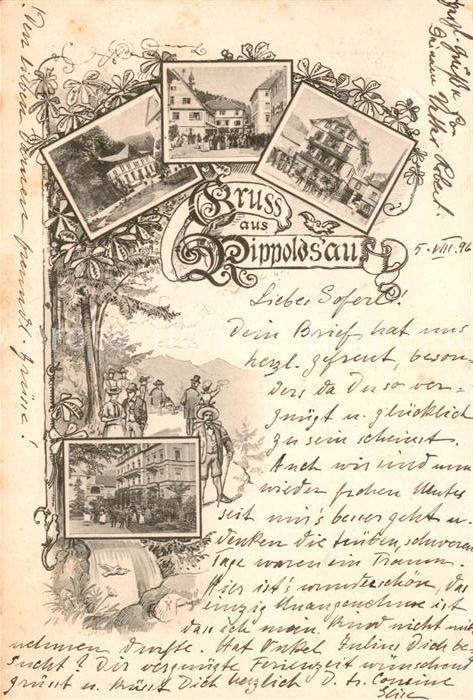 Gruss
aus
Rippoldsau
5. VIII. 96
Dein Brief hat uns
herzl. gefreut, beson-
ders da Du so ver-
gnügt u. glücklich
zu sein scheinst.
Auch wir sind nun
wieder frohen Mutes
seit mir's besser geht u.
denken die trüben, schweren
Tage waren ein Traum.
Hier ist's wunderschön, das
einzig Unangenehme ist
dass ich mein Kind nicht mit
nehmen durfte. Hat Onkel Julius Dich be-
sucht? Dir vergnügte Ferienzeit wünschend
grüsst u. küsst Dich herzlich D. tr. Cousine
Den lieben Damen freundl. Grüsse!